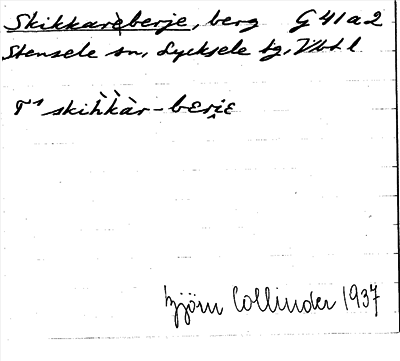 Skikkareberje, berg G 41 a 2
Stensele sn, Lycksele tg, Vbtl
skihkàr-bɛrjɛ
Björn Collinder 1937